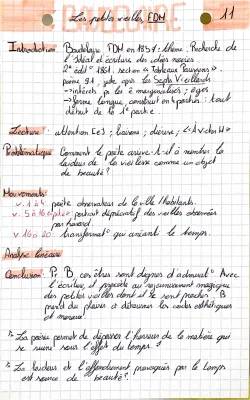 BAUDELAIRE
Les petites vieilles FDM 11
Introduction: Baudelaire FDM en 1857: thème: Recherche de
l'Idéal d'écriture des idées noires
2e édit° 1861: section "Tableaux Parisiens".
poème 91: juste après Les Septs Vieillards
→ intérêt pr les ê marginalisés; âgés
→ forme longue, construit en parties: tout
début de la 1e partie.
Lecture: attention
Problématique: Comment le poète arrive-t-il à montrer la
laideur de la vieillesse comme un objet
de beauté?
Mouvements:
v. 1 à 4: poète observateur de la ville & habitants.
v. 5 à 16: portrait dépréciatif des vieilles observées
par hasard.
v. 16 à 20: transformat° qui anéanti le temps.
Analyse linéaire
Conclusion: Pr B, ces êtres sont dignes d'admirat°. Avec
l'écriture, il procède au rajeunissement magique
des petites vieilles dont il se sent proche. B
prend du plaisir à détourner les codes esthétiques
et moraux.
La poésie permet de dépasser l'horreur de la matière qui
se ruine sous l'effet du temps.
La laideur de l'effondrement provoquée par le temps
est source de beauté.